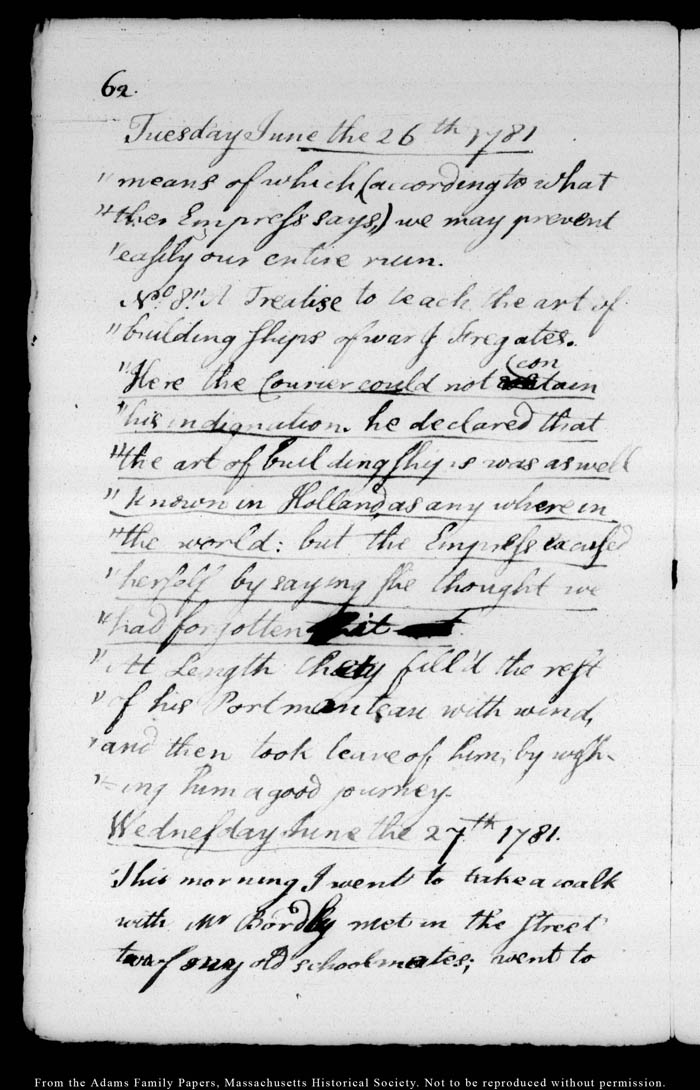 62.
Tuesday June the 26th 1781
" means of which (according to what
" the Empress says,) we may prevent
" easily our entire ruin.
No 8." A Treatise to teach the art of
" building ships of war & Fregates.
" Here the Courier could not contain
" his indignation. he declared that
" the art of building ships was as well
" known in Holland, as any where in
" the world: but the Empress excused
" herself by saying she thought we
" had forgotten it
" At Length they fill'd the rest
" of his Portmanteau with wind,
" and then took leave of him, by wish-
"-ing him a good journey.
Wednesday June the 27th 1781.
This morning I went to take a walk
with Mr Bordly met in the street
two of my old schoolmates; went to
From the Adams Family Papers, Massachusetts Historical Society. Not to be reproduced without permission.